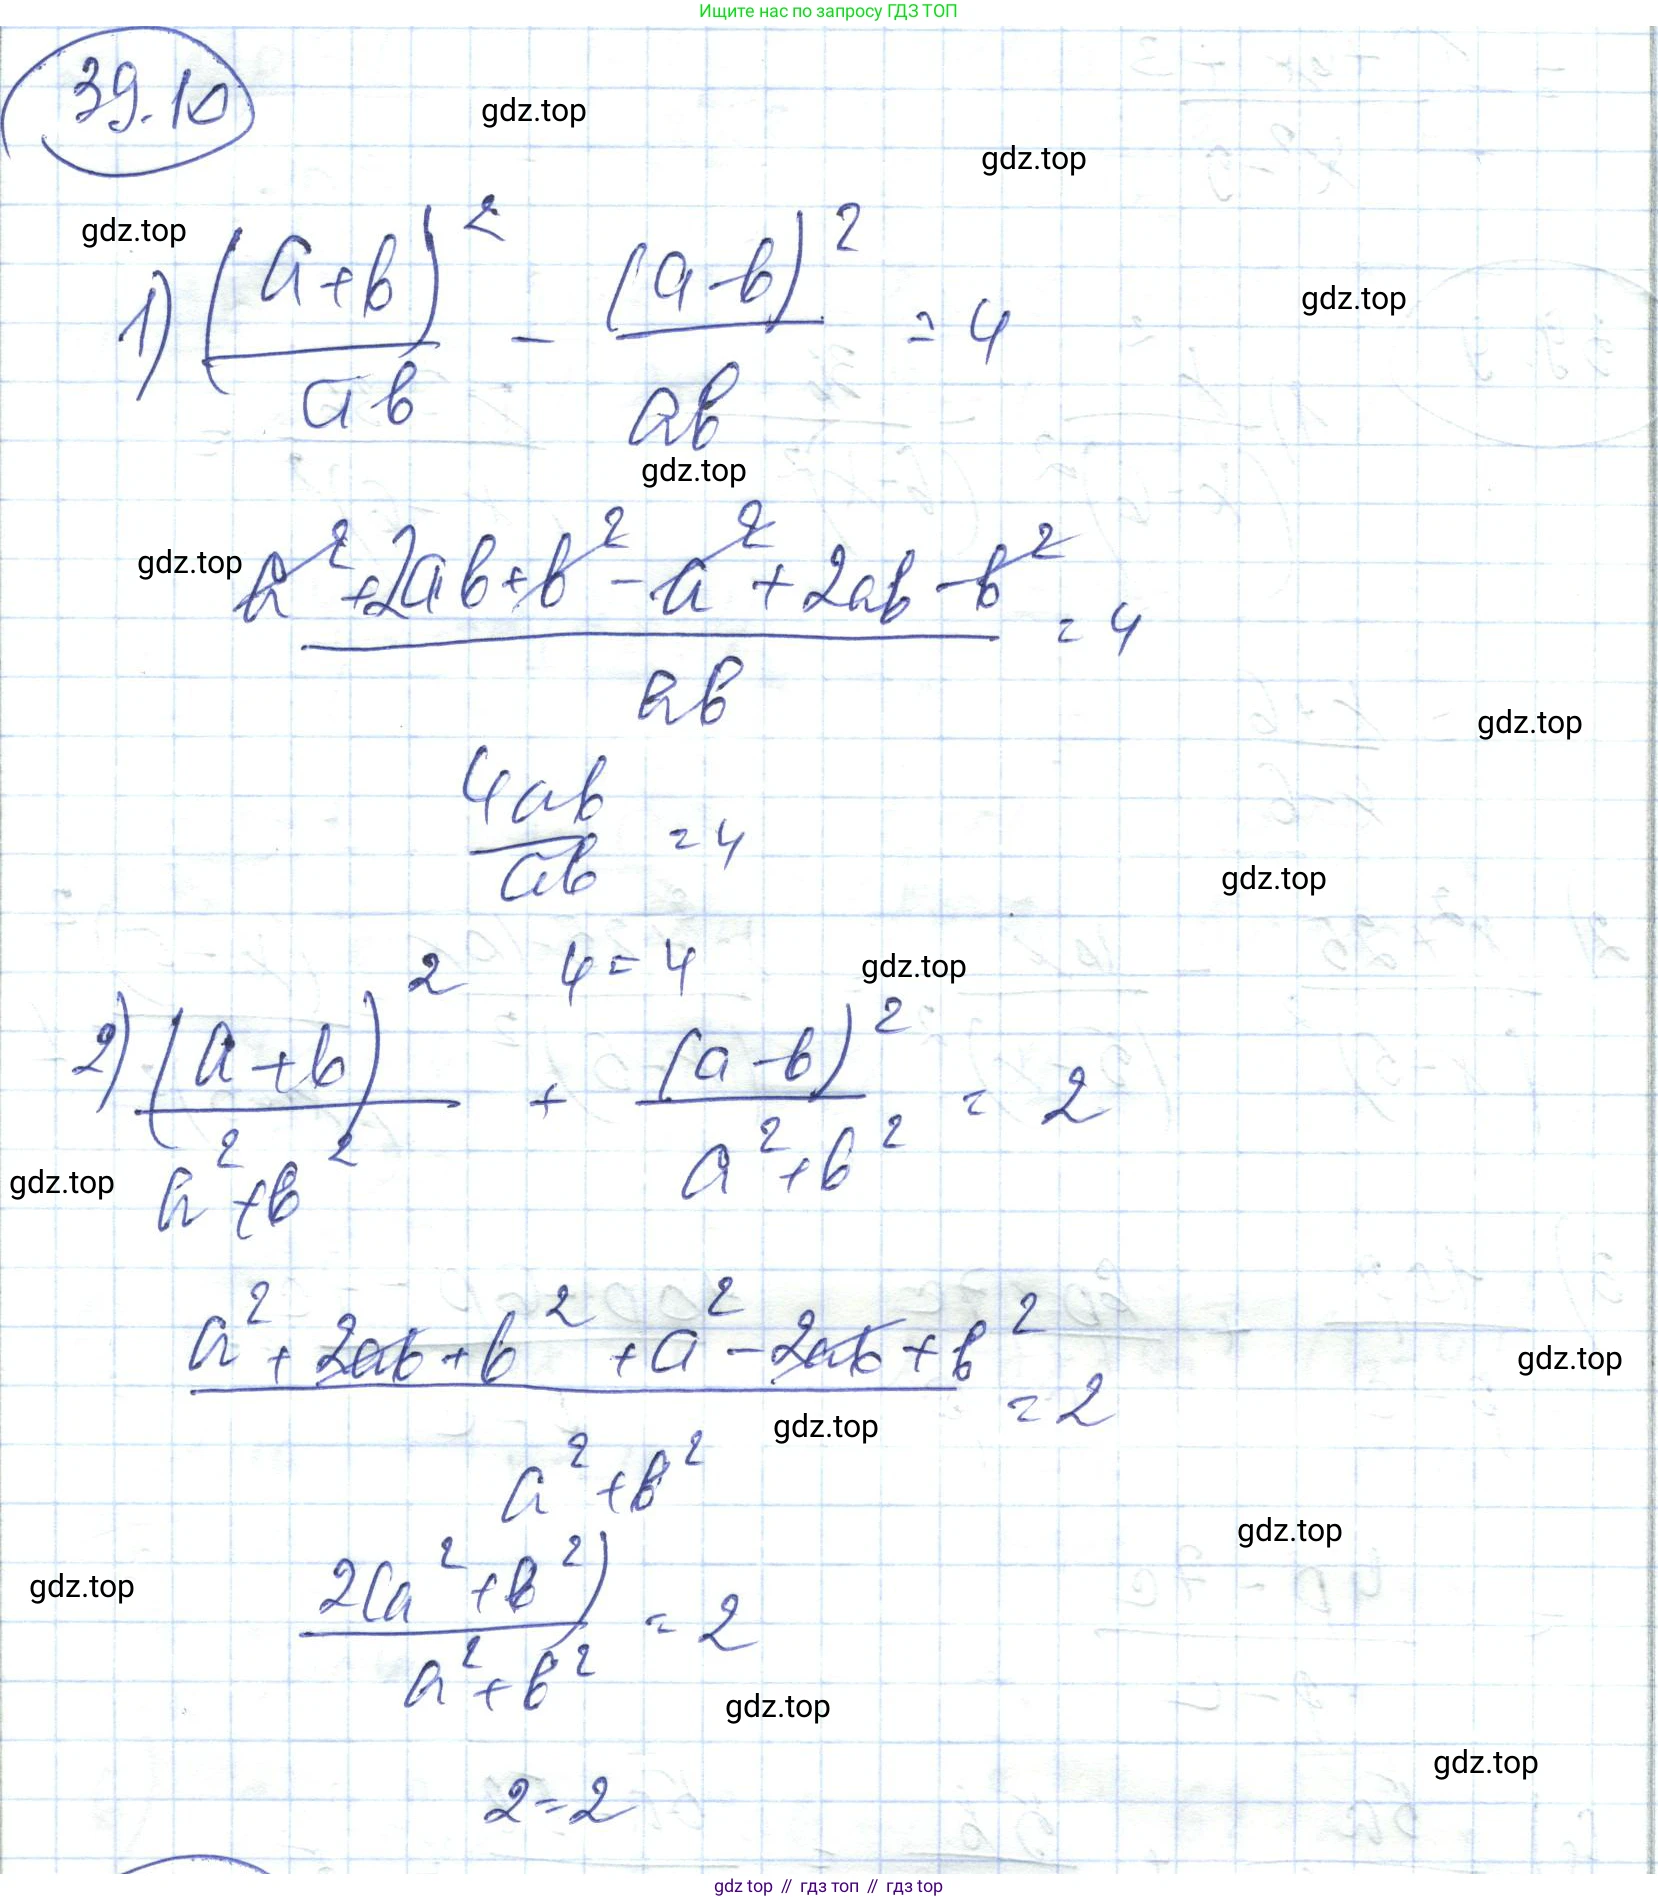 Ищите нас по запросу ГДЗ ТОП
39.10
gdz.top
gdz.top
gdz.top
1) (a+b)² / ab - (a-b)² / ab = 4
gdz.top
gdz.top
gdz.top
a² + 2ab + b² - a² + 2ab - b² / ab = 4
gdz.top
4ab / ab = 4
gdz.top
4 = 4
gdz.top
2) (a+b)² / a²+b² + (a-b)² / a²+b² = 2
gdz.top
a² + 2ab + b² + a² - 2ab + b² / a²+b² = 2
gdz.top
gdz.top
gdz.top
2(a²+b²) / a²+b² = 2
gdz.top
gdz.top
gdz.top
2=2
gdz top // гдз топ // гдз top